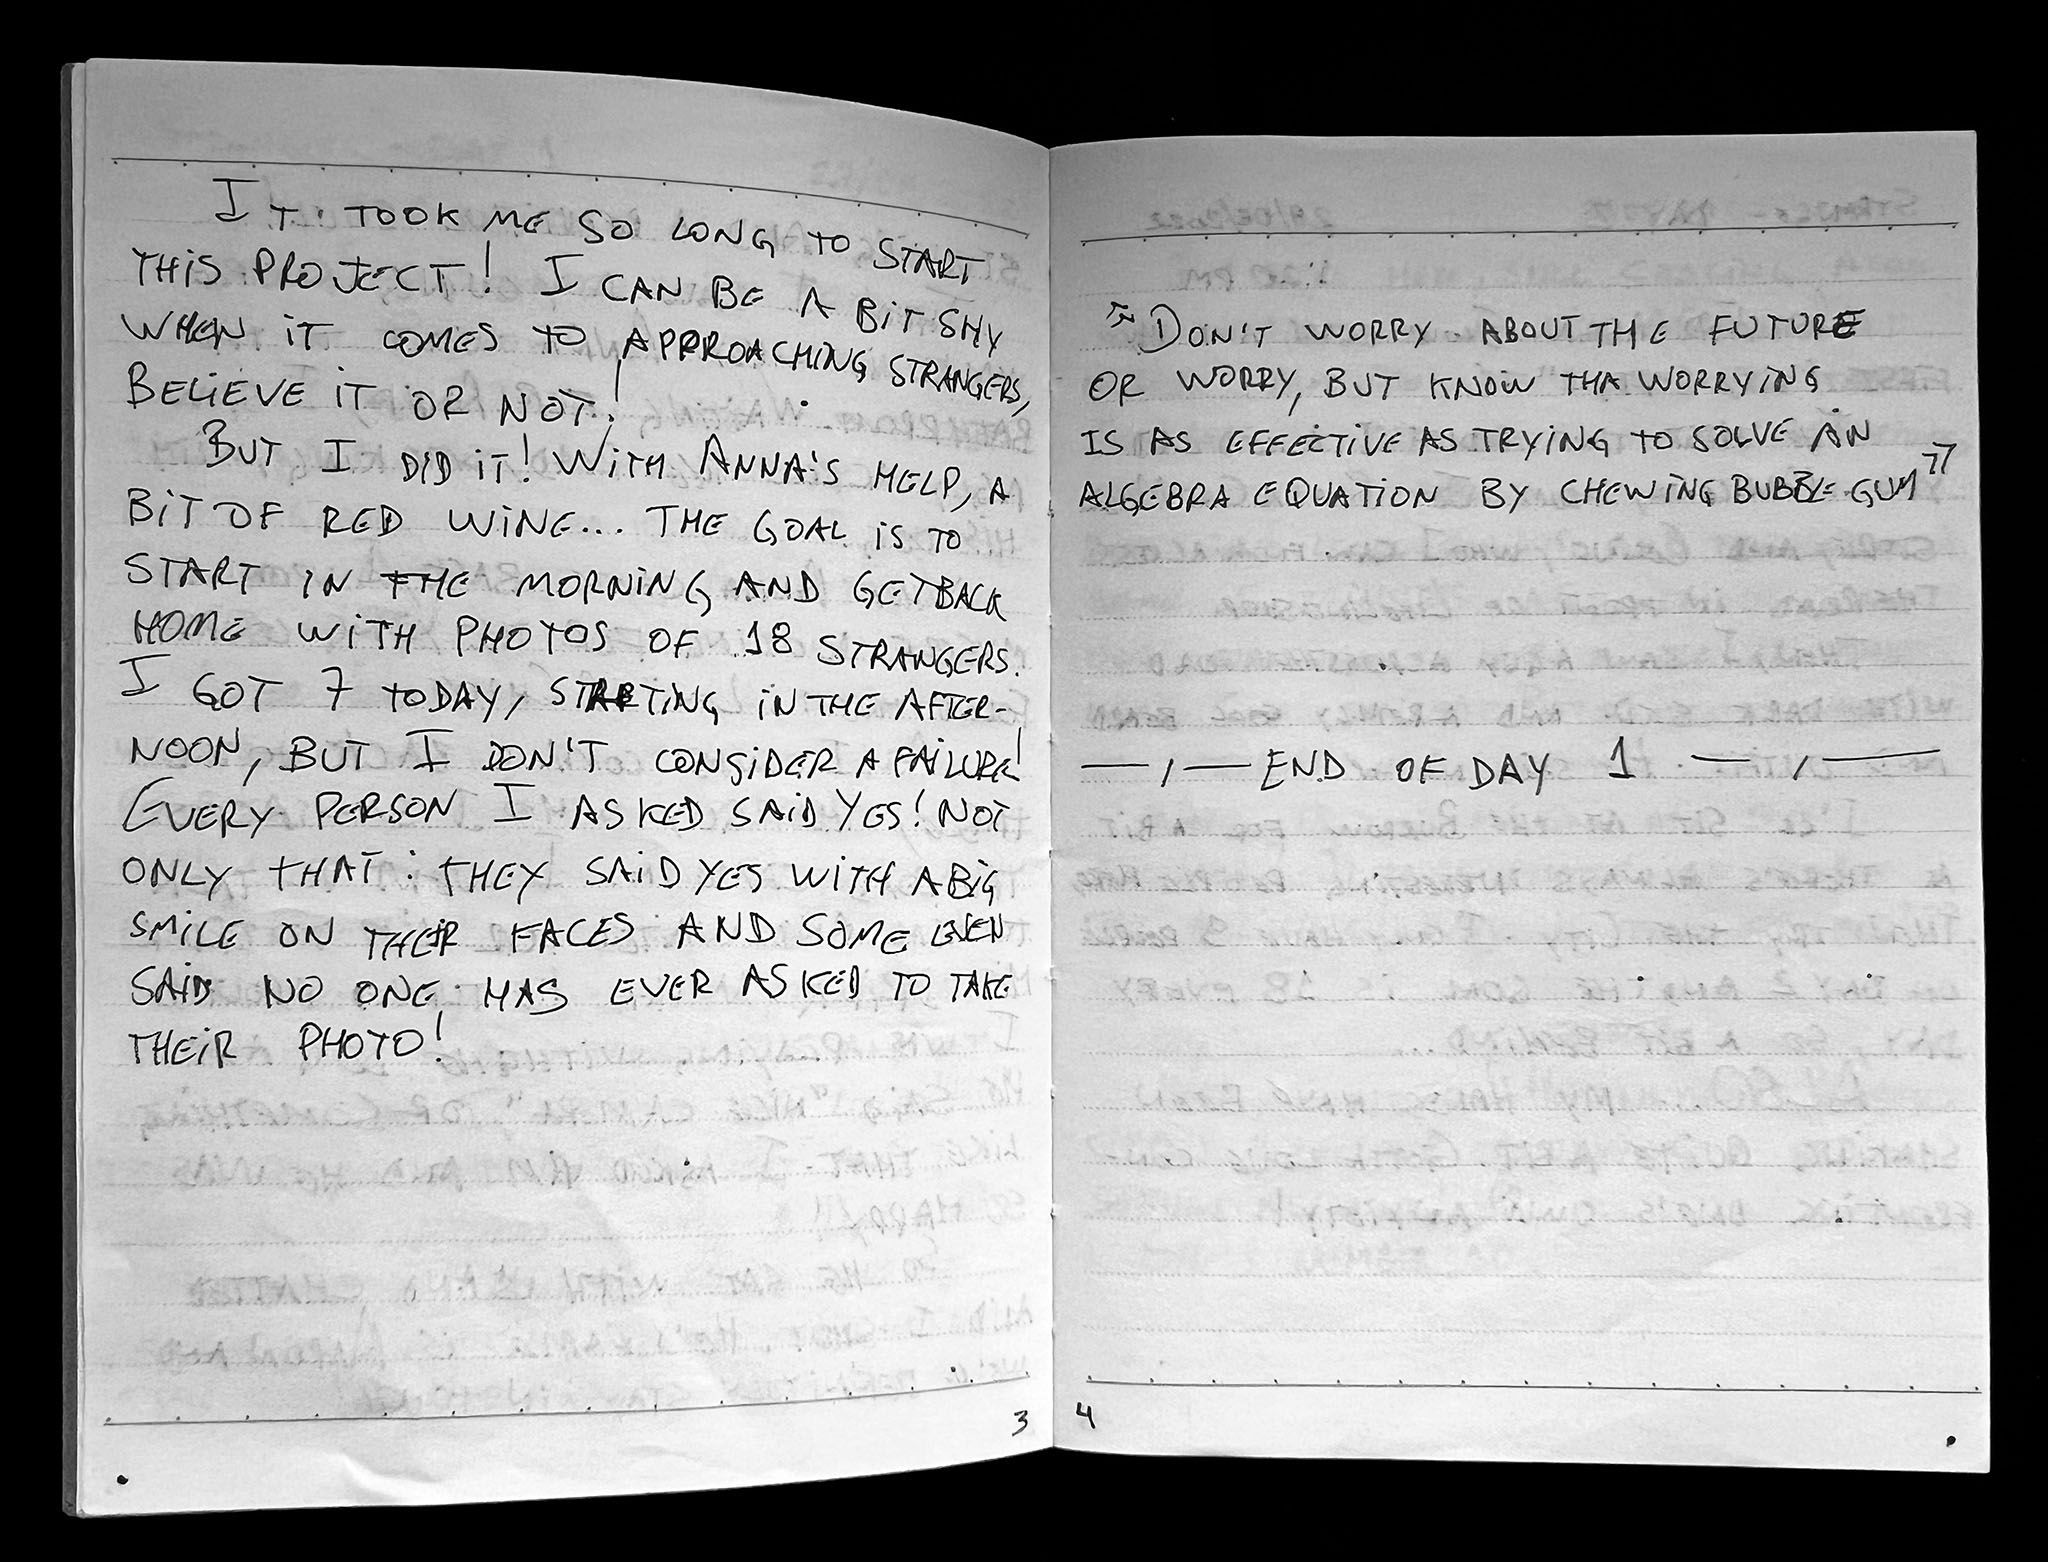 IT TOOK ME SO LONG TO START
THIS PROJECT! I CAN BE A BIT SHY
WHEN IT COMES TO APPROACHING STRANGERS,
BELIEVE IT OR NOT!
BUT I DID IT! WITH ANNA'S HELP, A
BIT OF RED WINE... THE GOAL IS TO
START IN THE MORNING AND GET BACK
HOME WITH PHOTOS OF 18 STRANGERS.
I GOT 7 TODAY, STARTING IN THE AFTER-
NOON, BUT I DON'T CONSIDER A FAILURE!
EVERY PERSON I ASKED SAID YES! NOT
ONLY THAT: THEY SAID YES WITH A BIG
SMILE ON THEIR FACES AND SOME EVEN
SAID NO ONE HAS EVER ASKED TO TAKE
THEIR PHOTO!
3
"DON'T WORRY ABOUT THE FUTURE
OR WORRY, BUT KNOW THA WORRYING
IS AS EFFECTIVE AS TRYING TO SOLVE AN
ALGEBRA EQUATION BY CHEWING BUBBLE GUM"
— , — END OF DAY 1 — , —
4